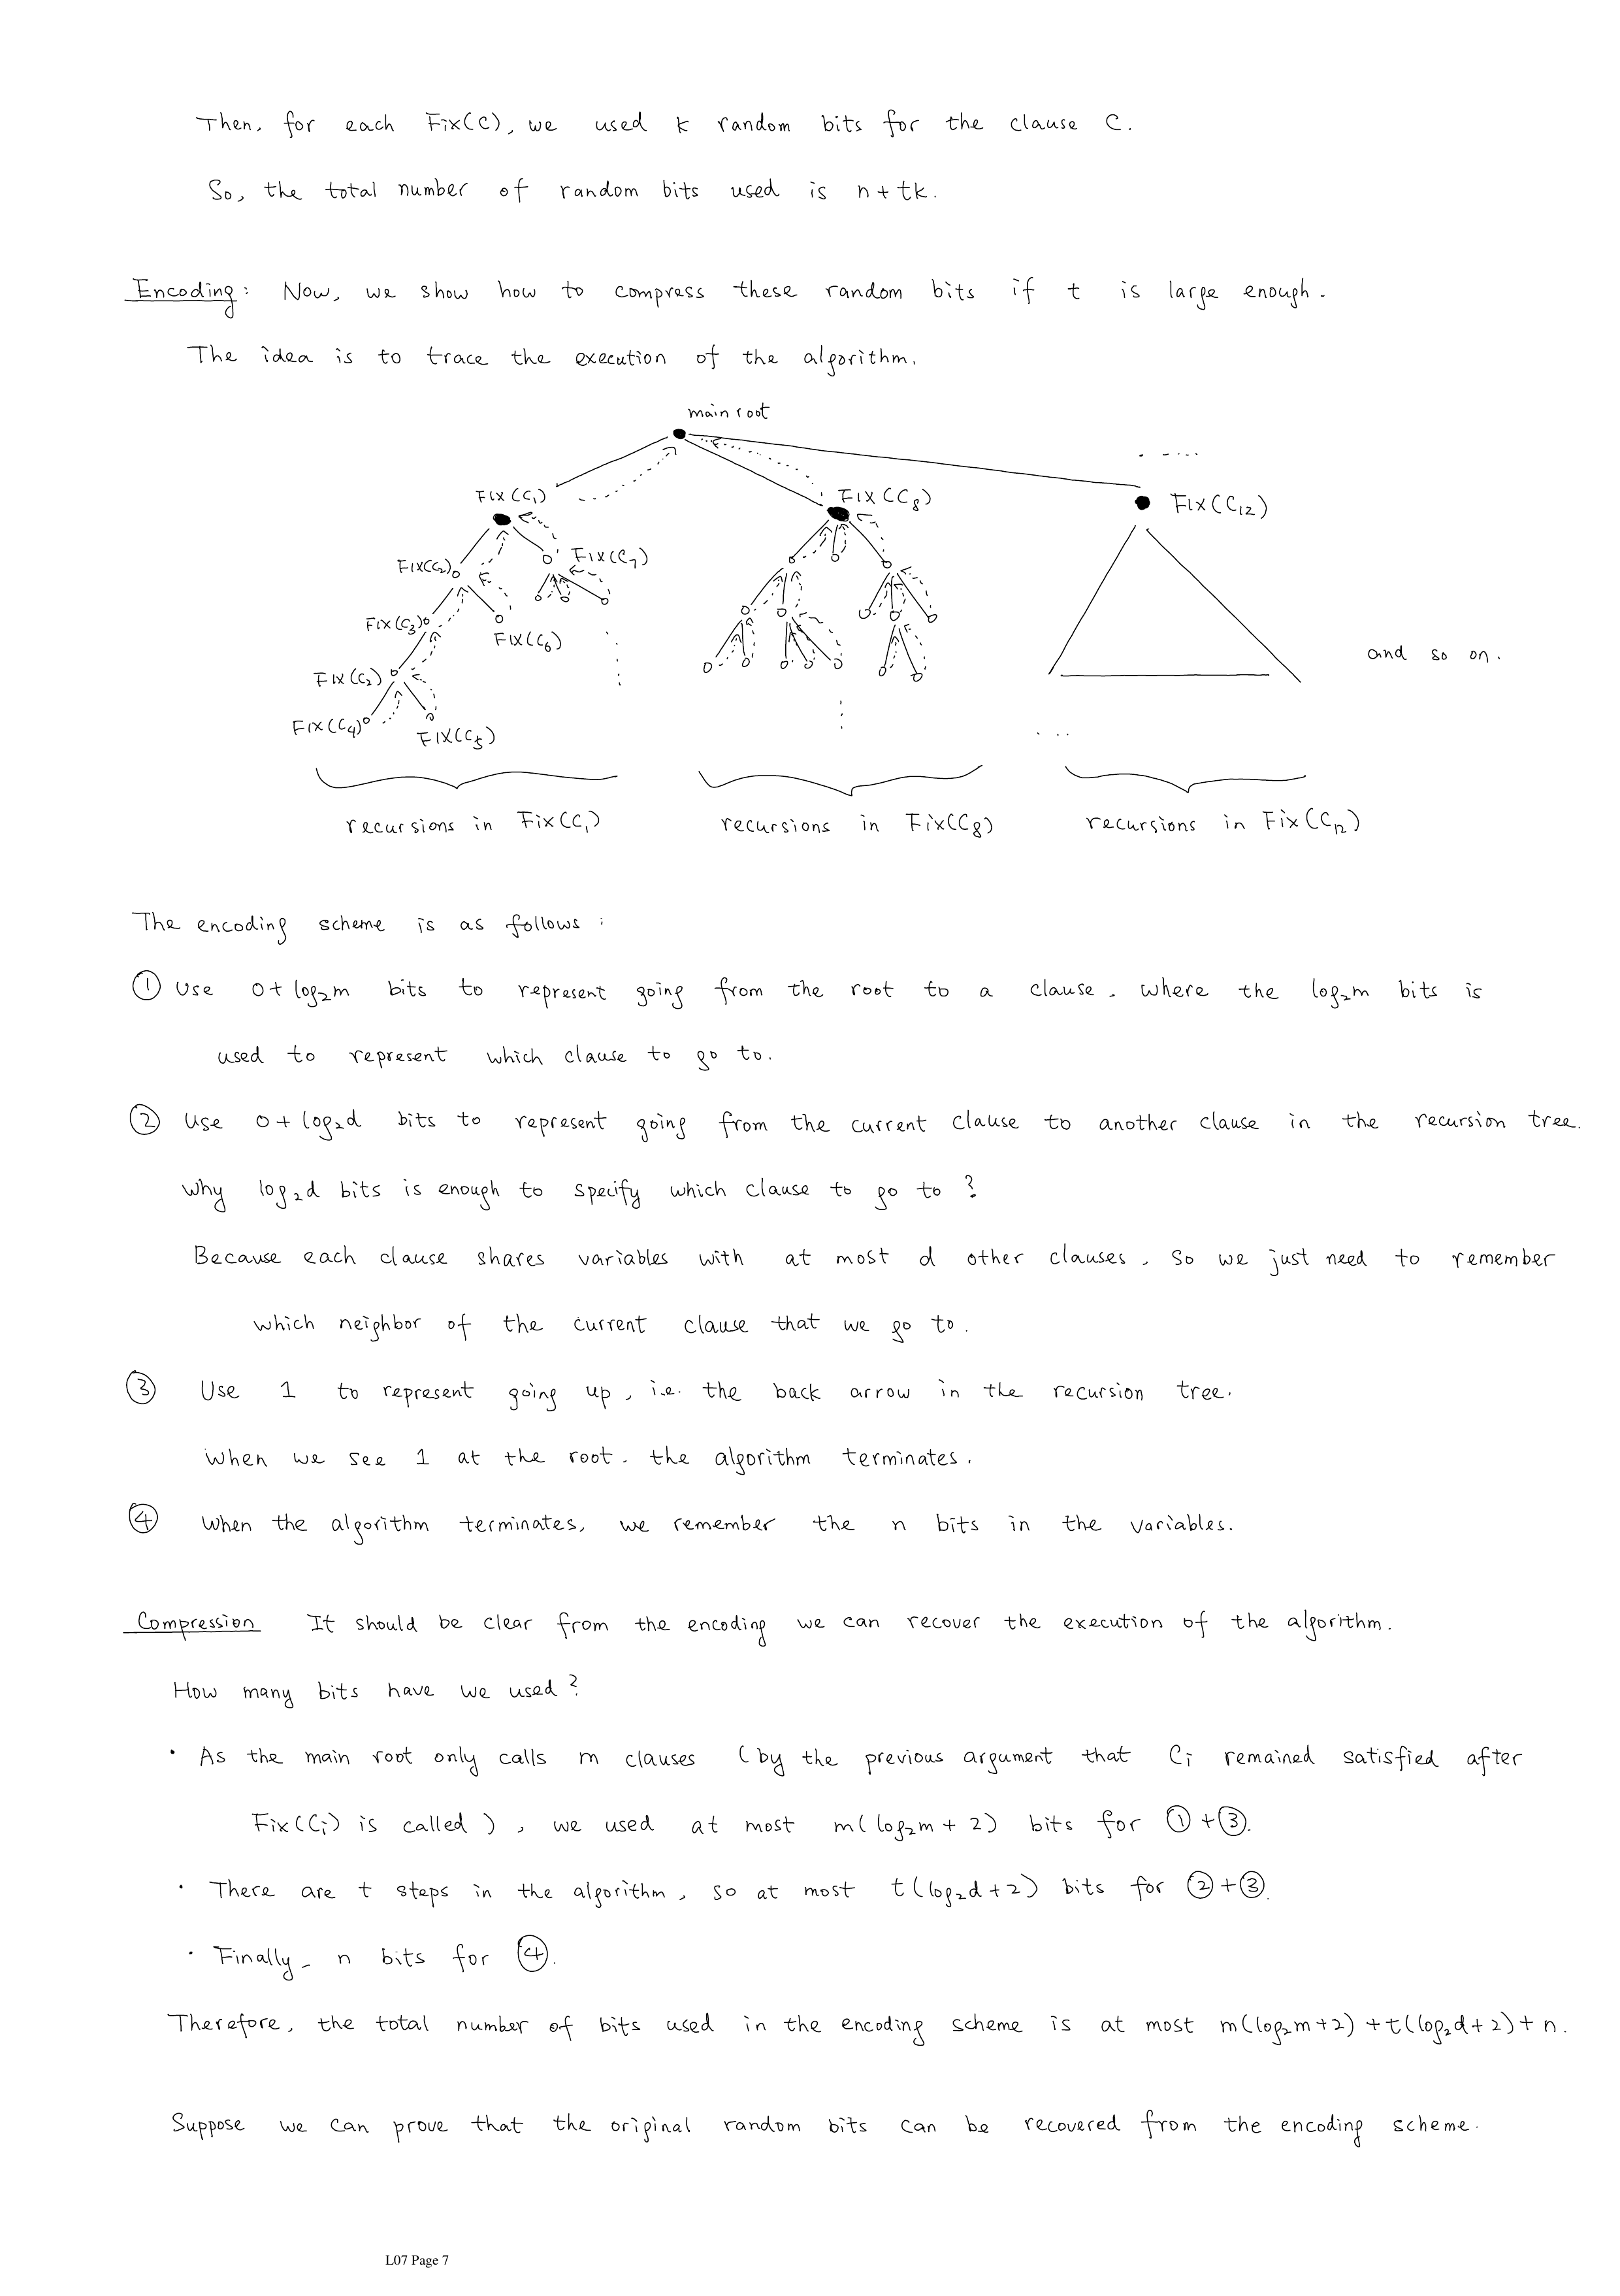 Then, for each Fix(C), we used k random bits for the clause C.
So, the total number of random bits used is n+tk.
Encoding: Now, we show how to compress these random bits if t is large enough.
The idea is to trace the execution of the algorithm.
main root
Fix(C₁)
Fix(C₈)
Fix(C₁₂)
Fix(C₂)
Fix(C₇)
Fix(C₃)
Fix(C₆)
Fix(C₂)
and so on.
Fix(C₄)
Fix(C₅)
recursions in Fix(C₁)
recursions in Fix(C₈)
recursions in Fix(C₁₂)
The encoding scheme is as follows:
① Use 0+log₂m bits to represent going from the root to a clause, where the log₂m bits is
used to represent which clause to go to.
② Use 0+log₂d bits to represent going from the current clause to another clause in the recursion tree.
Why log₂d bits is enough to specify which clause to go to?
Because each clause shares variables with at most d other clauses, so we just need to remember
which neighbor of the current clause that we go to.
③ Use 1 to represent going up, i.e. the back arrow in the recursion tree.
When we see 1 at the root, the algorithm terminates.
④ When the algorithm terminates, we remember the n bits in the variables.
Compression It should be clear from the encoding we can recover the execution of the algorithm.
How many bits have we used?
• As the main root only calls m clauses (by the previous argument that Cᵢ remained satisfied after
Fix(Cᵢ) is called), we used at most m(log₂m+2) bits for ①+③.
• There are t steps in the algorithm, so at most t(log₂d+2) bits for ②+③.
• Finally, n bits for ④.
Therefore, the total number of bits used in the encoding scheme is at most m(log₂m+2)+t(log₂d+2)+n.
Suppose we can prove that the original random bits can be recovered from the encoding scheme.
L07 Page 7